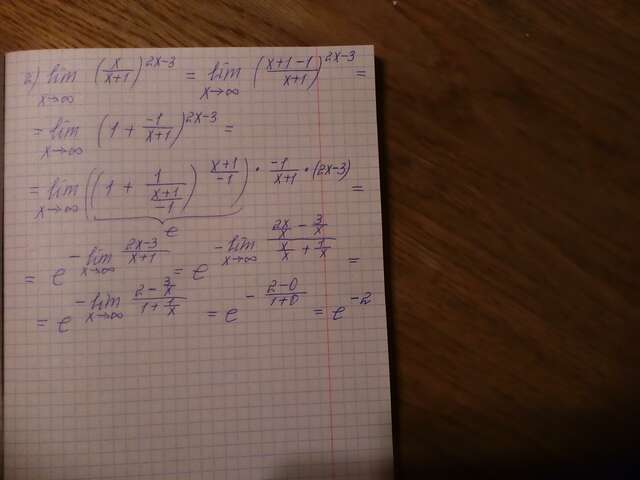 2) lim x→∞ (x/(x+1))^(2x-3) = lim x→∞ ((x+1-1)/(x+1))^(2x-3) =
= lim x→∞ (1 + -1/(x+1))^(2x-3) =
= lim x→∞ ((1 + 1/((x+1)/-1))^((x+1)/-1))^(· -1/(x+1) · (2x-3)) =
e
= e^(- lim x→∞ (2x-3)/(x+1)) = e^(- lim x→∞ (2x/x - 3/x)/(x/x + 1/x)) =
= e^(- lim x→∞ (2 - 3/x)/(1 + 1/x)) = e^(- (2-0)/(1+0)) = e^(-2)